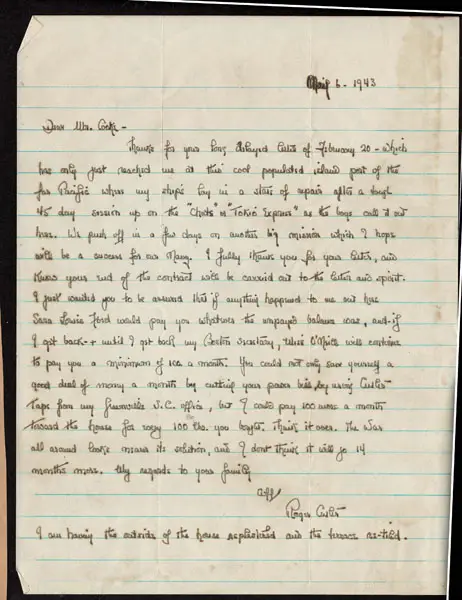 6 - 1943
Dear Mr. Cocke -
Thanks for your long delayed letter of February 20 - which
has only just reached me at this cool populated island port of the
far Pacific where my ship's lay in a state of repair after a tough
45 day session up on the "Chute" or "Tokio Express" as the boys call it out
here. We push off in a few days on another big mission which I hope
will be a success for our Navy. I fully thank you for your letter, and
know your end of the contract will be carried out to the letter and spirit.
I just wanted you to be assured that if anything happened to me out here
Sara Louise Ford would pay you whatever the unpaid balance was, and if
I got back - & until I got back my Boston secretary, Miss O'Neill will continue
to pay you a minimum of 100 a month. You could not only save yourself a
good deal of money a month by cutting your power bills by using Cutler
Tape from my Greenville S.C. office, but I could pay 100 more a month
toward the house for every 100 lbs. you bought. Think it over. The War
all around looks nears its solution, and I dont think it will go 14
months more. My regards to your family
Aff
Roger Cutler
I am having the outside of the house replastered and the terrace re-tiled.